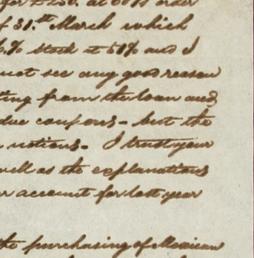 for £250. at 60% order
of 31.st March which
6.% stock at 50% and I
not see any good reason
ting from the loan and
due coupons - but the
notions. I trust your
well as the explanations
r account for last year
the purchasing of Mexican